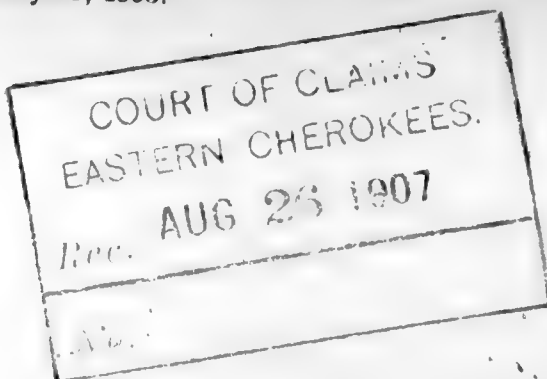 COURT OF CLAIMS
EASTERN CHEROKEES.
Rec. AUG 26 1907
No.